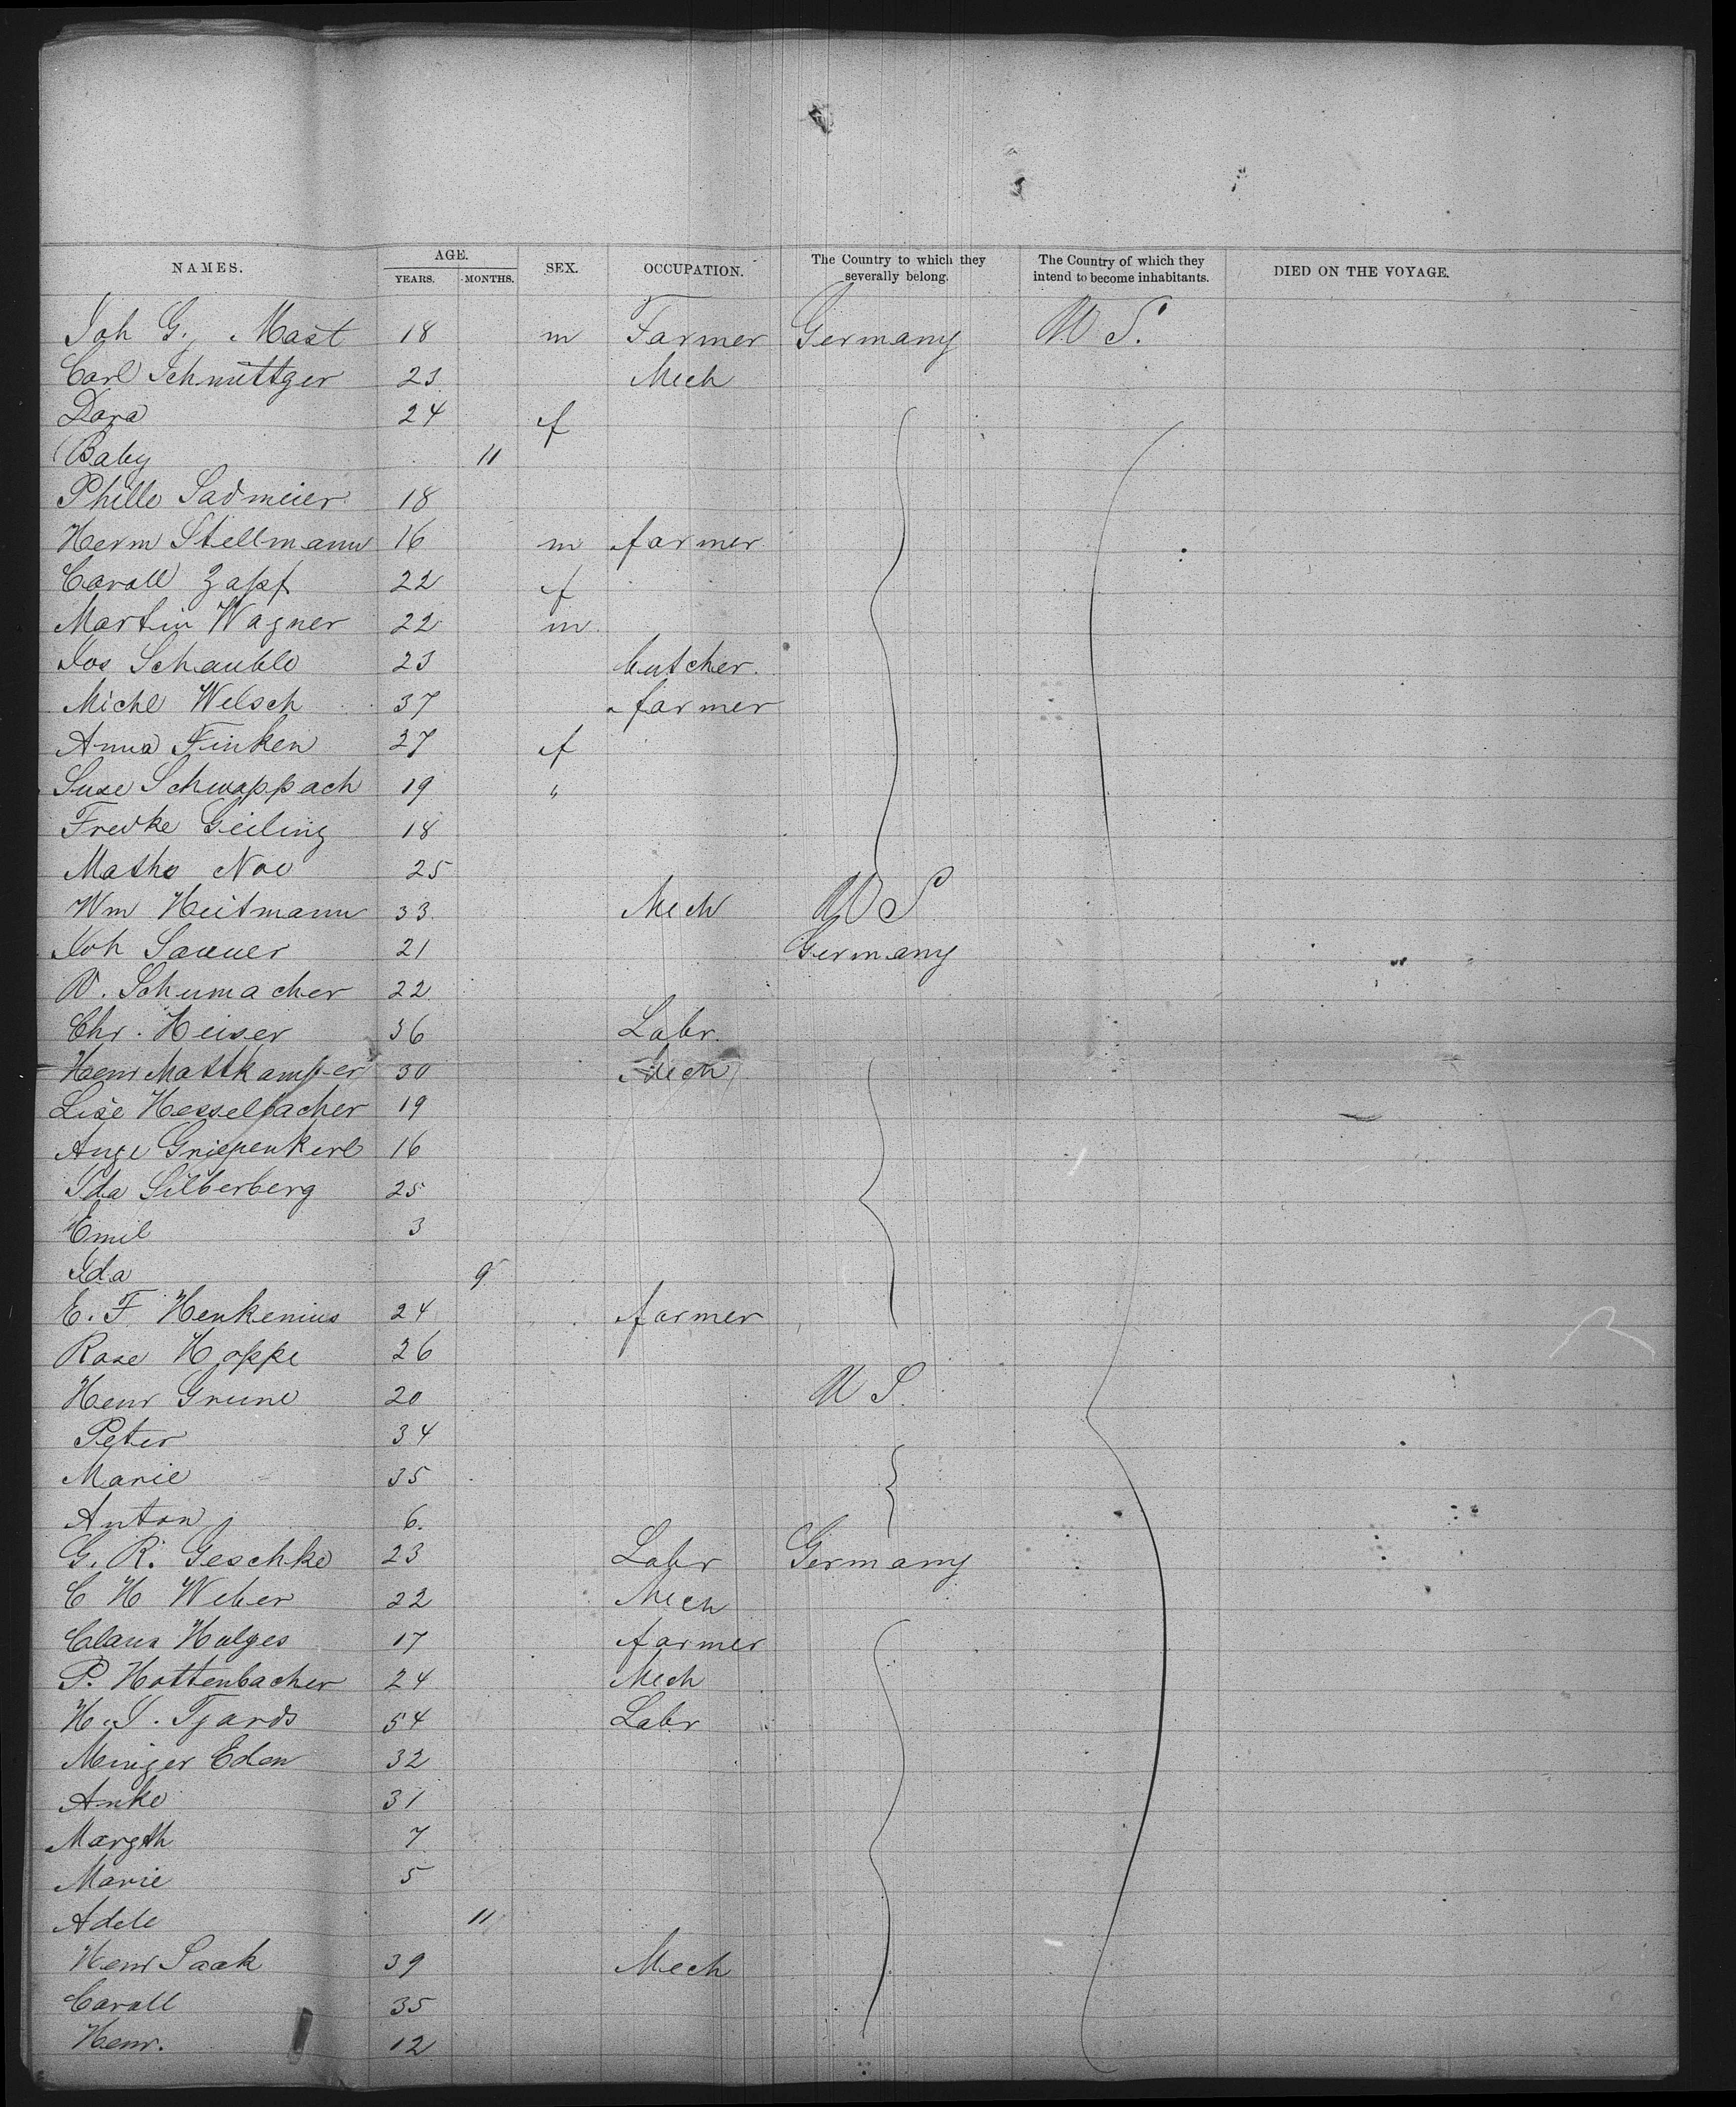 NAMES. AGE. YEARS. MONTHS. SEX. OCCUPATION. The Country to which they severally belong. The Country of which they intend to become inhabitants. DIED ON THE VOYAGE.
Joh G. Mast 18 m Farmer Germany U.S.
Carl Schmittger 23 Mech
Dora 24 f
Baby 11
Phille Sadmeier 18
Herm Stellmann 16 m farmer
Caroll Zapf 22 f
Martin Wagner 22 m
Jos Schauble 23 butcher.
Michl Welsch 37 farmer
Anna Finken 27 f
Suse Schwappach 19 "
Fredke Geiling 18
Mathe Noe 25
Wm Heitmann 33 Mech U S
Joh Sauer 21 Germany
W. Schumacher 22
Chr. Heiser 36 Labr.
Henr Mattkamper 30 Mech
Lise Hesselbacher 19
Auge Griepenkerl 16
Ida Silberberg 25
Emil 3
Ida 9
E. F. Henkenius 24 farmer
Rose Hoppe 26
Henr Grune 20 U S.
Peter 34
Marie 35
Anton 6.
G. R. Geschke 23 Labr Germany
C H Weber 22 Mech
Claus Holges 17 farmer
P. Hottenbacher 24 Mech
H. J. Tjards 54 Labr
Eden 32
Anke 31
Margth 7
Marie 5
Adele 11
Henr Saak 39 Mech
Caroll 35
Henr. 12